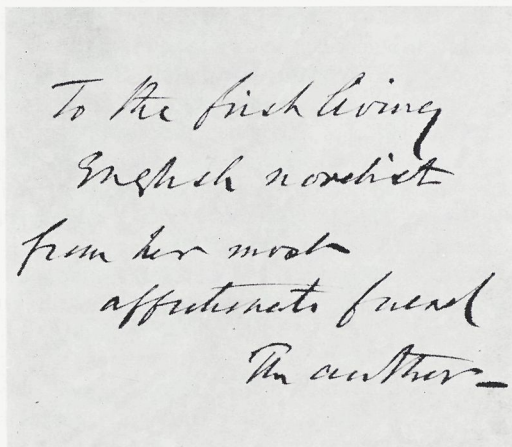 To the first living
English novelist
from her most
affectionate friend
The author—